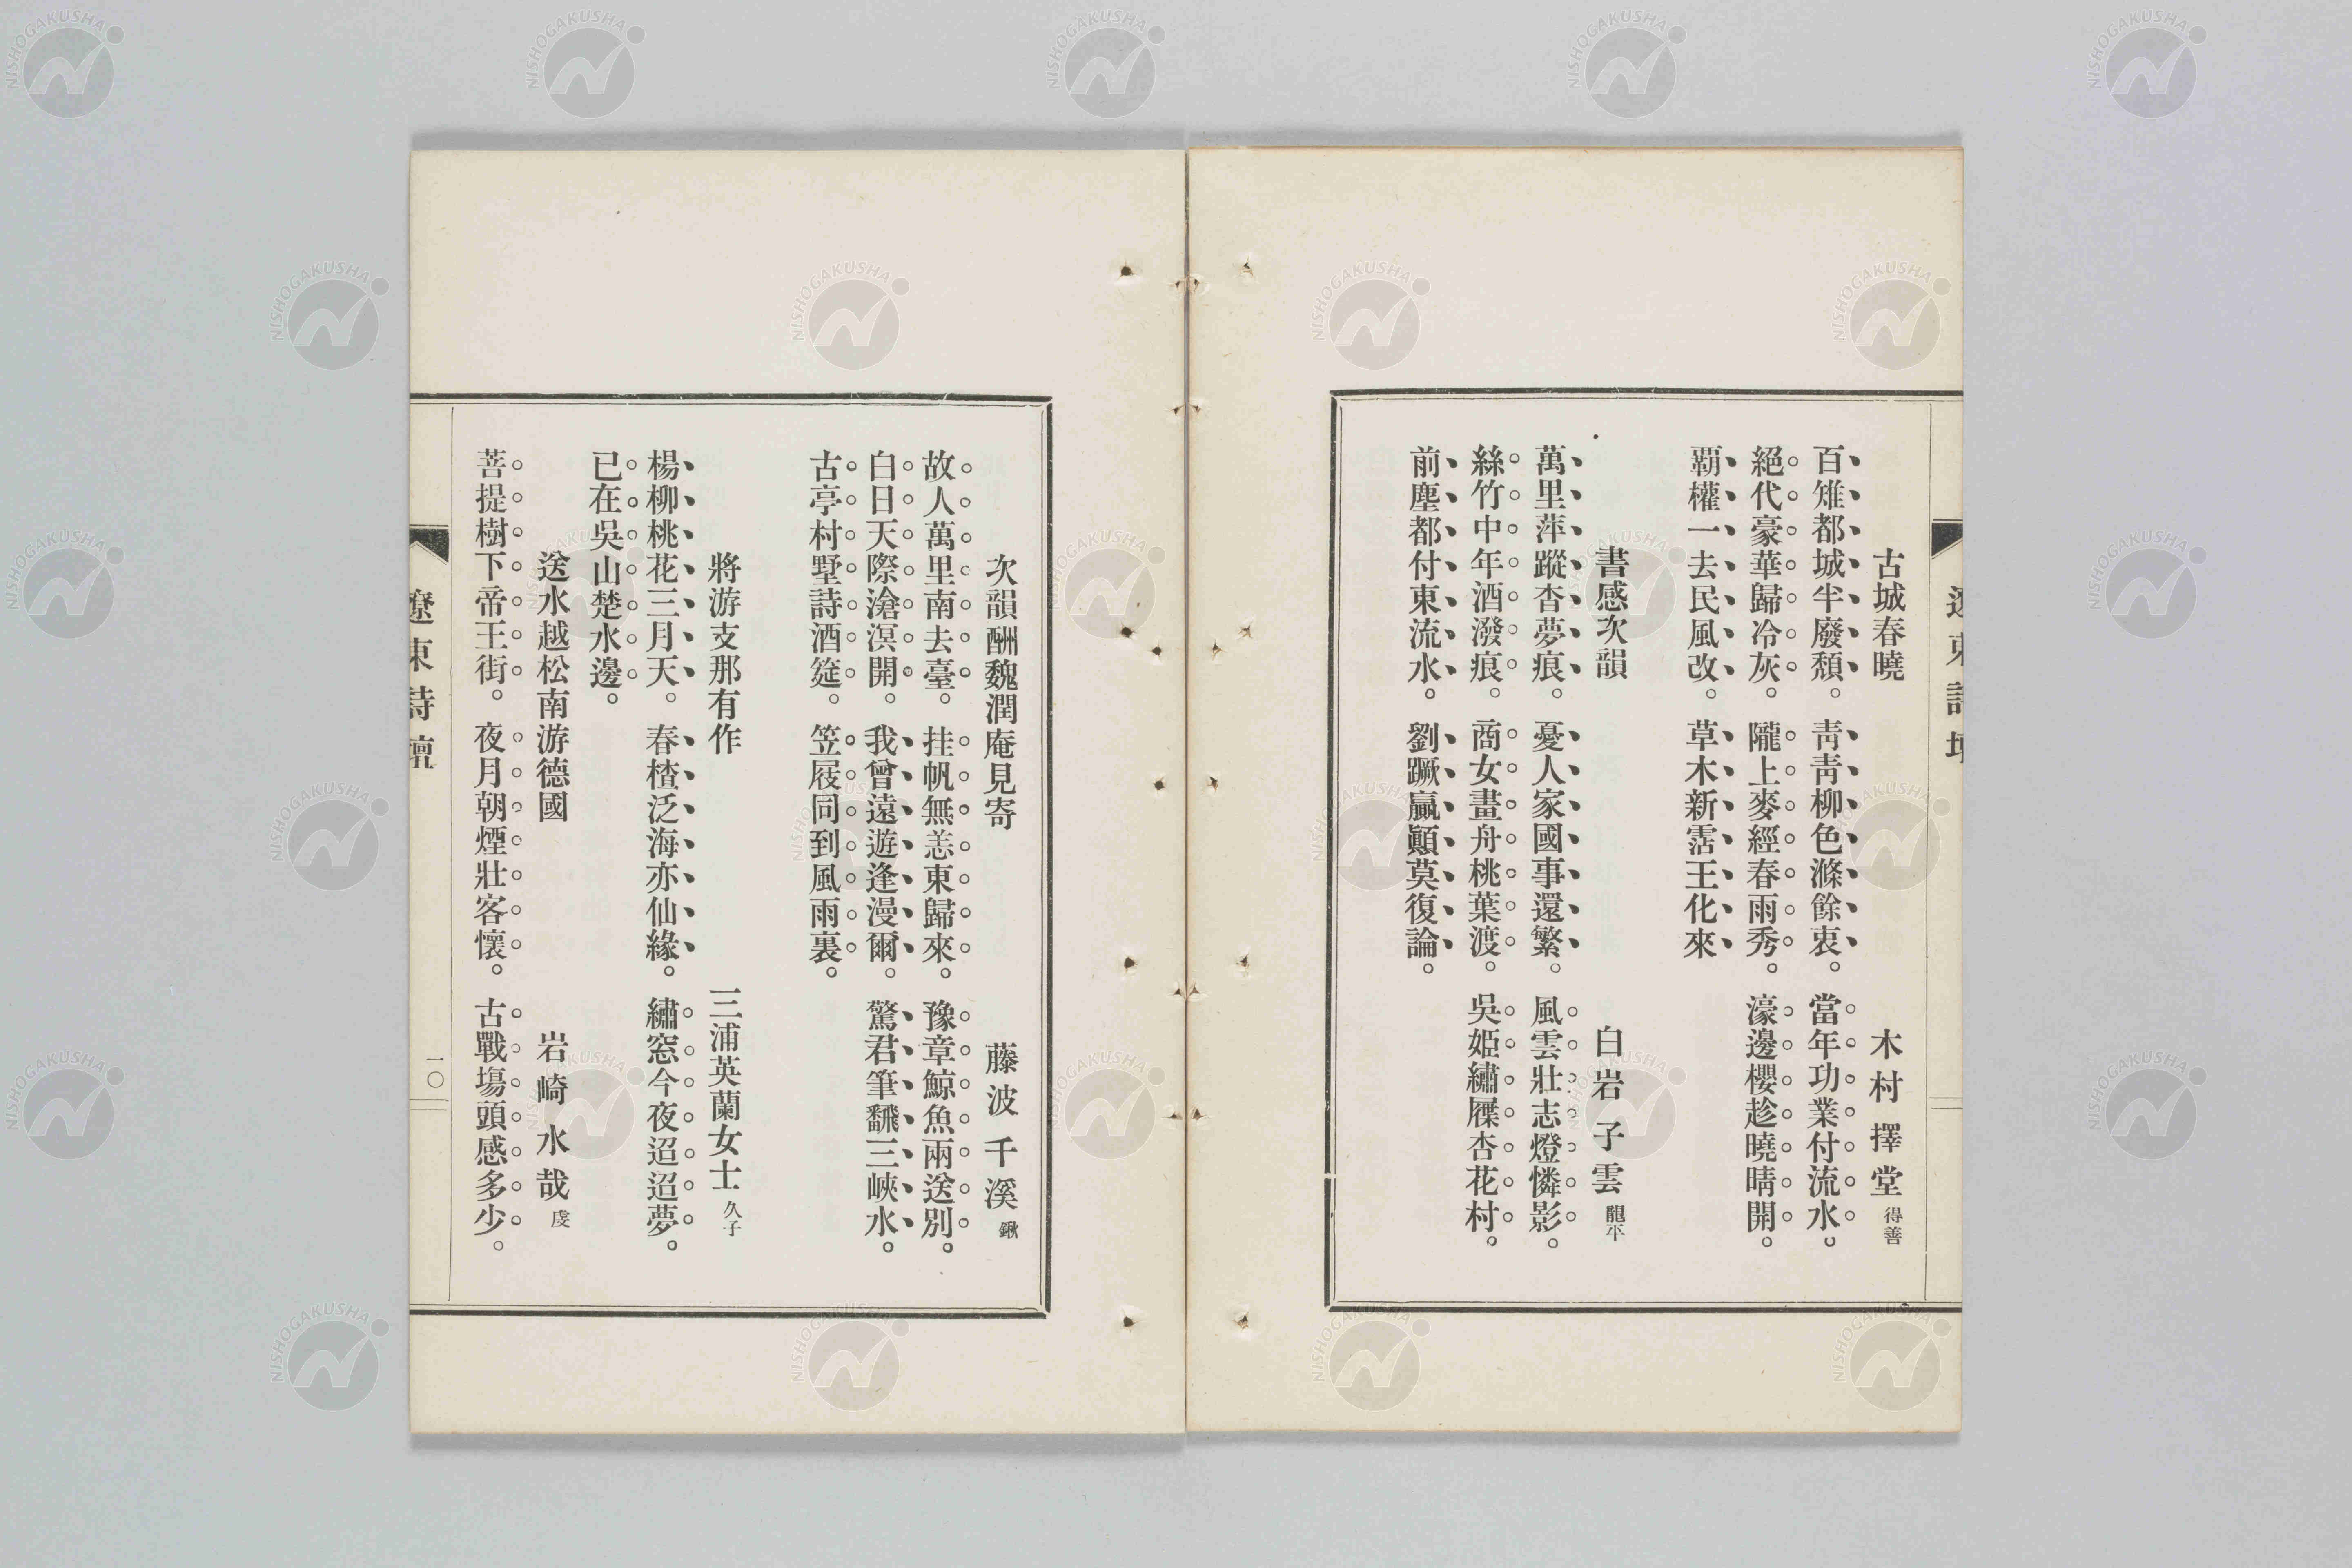 遼東詩壇
古城春曉　木村擇堂 得善
百雉都城半廢頹。靑靑柳色滌餘衷。當年功業付流水。
絕代豪華歸冷灰。隴上麥經春雨秀。濠邊櫻趁曉晴開。
覇權一去民風改。草木新霑王化來
書感次韻　白岩子雲 龍平
萬里萍蹤杳夢痕。憂人家國事還繁。風雲壯志燈憐影。
絲竹中年酒潑痕。商女畫舟桃葉渡。吳姫繡屧杏花村。
前塵都付東流水。劉蹶贏顚莫復論。
次韻酬魏潤庵見寄　藤波千溪 鍬
故人萬里南去臺。挂帆無恙東歸來。豫章鯨魚兩送別。
白日天際滄溟開。我曾遠遊逢漫爾。驚君筆飜三峽水。
古亭村墅詩酒筵。笠屐同到風雨裏。
將游支那有作　三浦英蘭女士 久子
楊柳桃花三月天。春楂泛海亦仙緣。繡窓今夜迢迢夢。
已在吳山楚水邊。
送水越松南游德國　岩崎水哉 虔
菩提樹下帝王街。夜月朝煙壯客懷。古戰塲頭感多少。
遼東詩壇
一〇